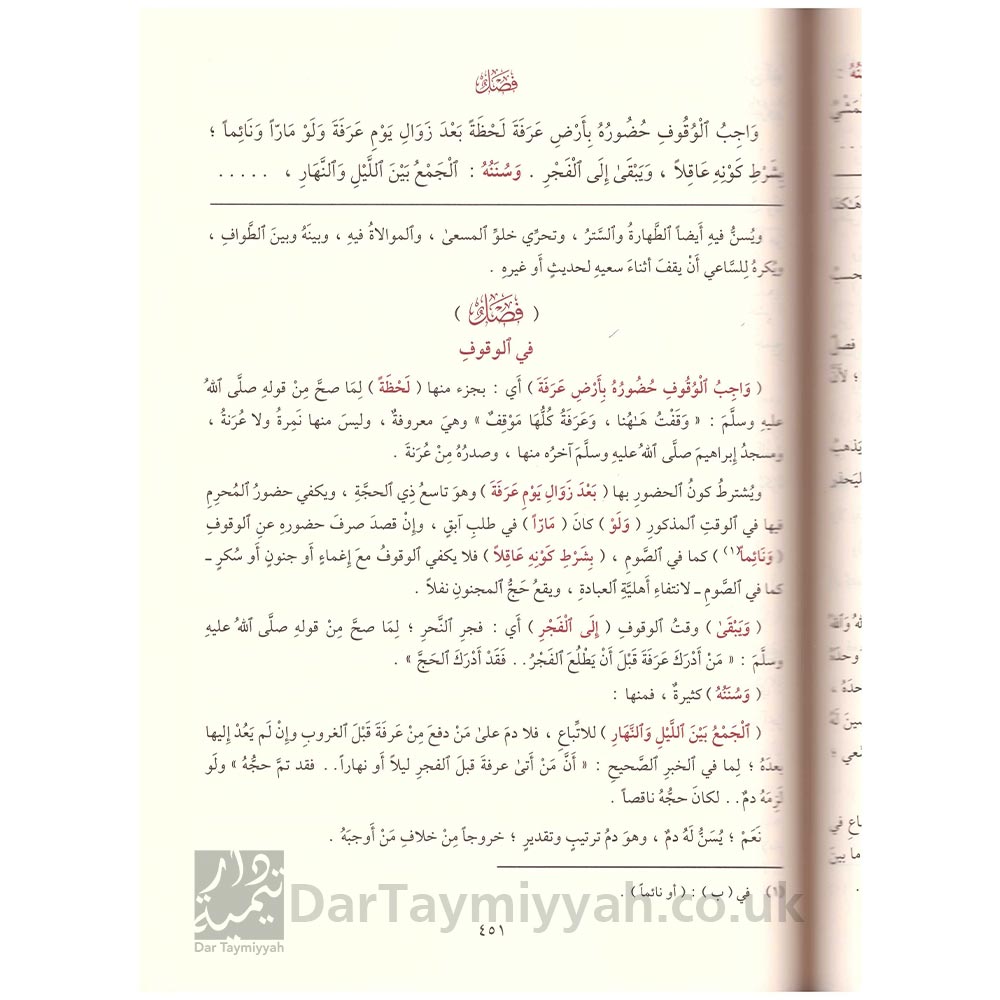 فَصْلٌ
وَاجِبُ ٱلْوُقُوفِ حُضُورُهُ بِأَرْضِ عَرَفَةَ لَحْظَةً بَعْدَ زَوَالِ يَوْمِ عَرَفَةَ وَلَوْ مَارّاً وَنَائِماً ؛
بِشَرْطِ كَوْنِهِ عَاقِلاً ، وَيَبْقَىٰ إِلَى ٱلْفَجْرِ . وَسُنَنُهُ : ٱلْجَمْعُ بَيْنَ ٱللَّيْلِ وَٱلنَّهَارِ ، .....
ويُسنُّ فيهِ أيضاً ٱلطَّهارةُ وٱلسَّترُ ، وتحرِّي خلوِّ ٱلمسعىٰ ، وٱلموالاةُ فيهِ ، وبينَهُ وبينَ ٱلطَّوافِ ،
ويُكرهُ لِلسَّاعي أَنْ يقفَ أثناءَ سعيهِ لحديثٍ أَو غيرِهِ .
( فَصْلٌ )
في ٱلوقوفِ
( وَاجِبُ ٱلْوُقُوفِ حُضُورُهُ بِأَرْضِ عَرَفَةَ ) أَي : بجزء منها ( لَحْظَةً ) لِمَا صحَّ مِنْ قولهِ صلَّى ٱللهُ
عليهِ وسلَّمَ : « وَقَفْتُ هَـٰهُنا ، وَعَرَفَةُ كُلُّهَا مَوْقِفٌ » وهيَ معروفةٌ ، وليسَ منها نَمِرةُ ولا عُرَنةُ ،
ومسجدُ إِبراهيمَ صلَّى ٱللهُ عليهِ وسلَّمَ آخرُه منها ، وصدرُهُ مِنْ عُرَنةَ .
ويُشترطُ كونُ ٱلحضورِ بها ( بَعْدَ زَوَالِ يَوْمِ عَرَفَةَ ) وهوَ تاسعُ ذِي ٱلحجَّةِ ، ويكفي حضورُ ٱلمُحرِمِ
فيها في ٱلوقتِ ٱلمذكورِ ( وَلَوْ ) كانَ ( مَارّاً ) في طلبِ آبقٍ ، وإِنْ قصدَ صرفَ حضورِهِ عنِ ٱلوقوفِ
( وَنَائِماً(١) ) كما في ٱلصَّومِ ، ( بِشَرْطِ كَوْنِهِ عَاقِلاً ) فلا يكفي ٱلوقوفُ معَ إِغماءٍ أَو جنونٍ أَو سُكرٍ ـ
كما في ٱلصَّومِ ـ لانتفاءِ أَهليَّةِ ٱلعبادةِ ، ويقعُ حَجُّ ٱلمجنونِ نفلاً .
( وَيَبْقَىٰ ) وقتُ ٱلوقوفِ ( إِلَى ٱلْفَجْرِ ) أَي : فجرِ ٱلنَّحرِ ؛ لِمَا صحَّ مِنْ قولهِ صلَّى ٱللهُ عليهِ
وسلَّمَ : « مَنْ أَدْرَكَ عَرَفَةَ قَبْلَ أَنْ يَطْلُعَ ٱلفَجْرُ.. فَقَدْ أَدْرَكَ ٱلحَجَّ » .
( وَسُنَنُهُ ) كثيرةٌ ، فمنها :
( ٱلْجَمْعُ بَيْنَ ٱللَّيْلِ وَٱلنَّهَارِ ) للاتِّباعِ ، فلا دمَ علىٰ مَنْ دفعَ مِنْ عَرفةَ قَبْلَ ٱلغروبِ وإِنْ لَم يَعُدْ إِليها
بعدَهُ ؛ لِما في ٱلخبرِ ٱلصَّحيحِ : « أَنَّ مَنْ أَتىٰ عرفةَ قبلَ ٱلفجرِ ليلاً أَو نهاراً.. فقد تمَّ حجُّهُ » ولَو
لَزِمَهُ دمٌ.. لكانَ حجُّهُ ناقصاً .
نَعَمْ ؛ يُسَنُّ لَهُ دمٌ ، وهوَ دمُ ترتيبٍ وتقديرٍ ؛ خروجاً مِنْ خلافِ مَنْ أَوجبَهُ .
(١) في ( ب ) : ( أو نائماً ) .
٤٥١
دار تيمية
Dar Taymiyyah
DarTaymiyyah.co.uk